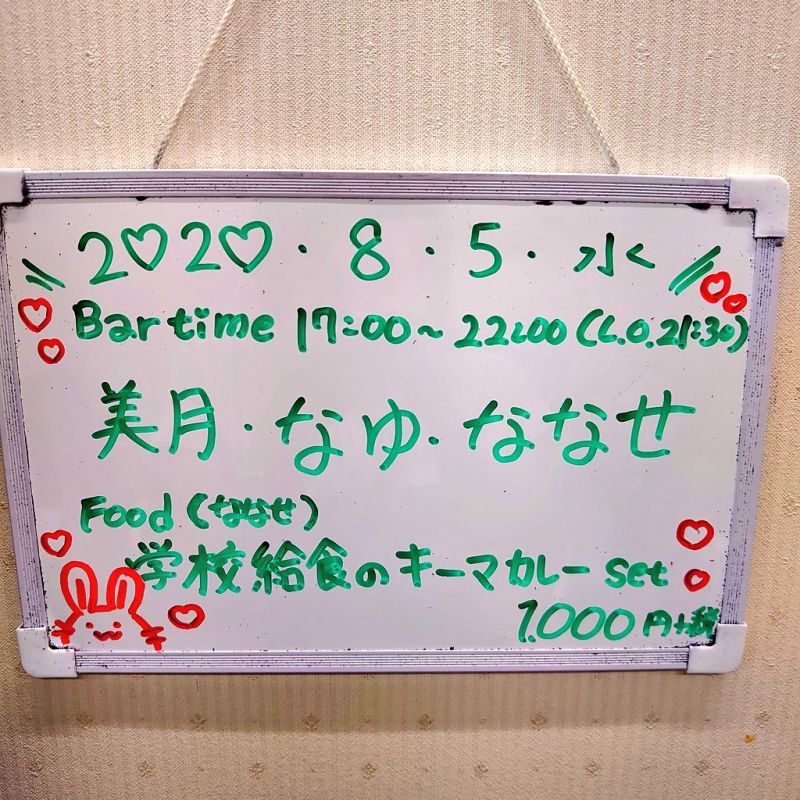 2020・8・5・水
Bar time 17:00〜22:00(L.O.21:30)
美月・なゆ・ななせ
Food(ななせ)
学校給食のキーマカレーset
1.000円+税